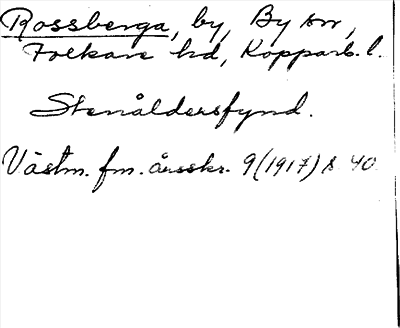 Rossberga, by, By sn,
Folkare hd, Kopparb. l.
Stenåldersfynd.
Västm. fm. årsskr. 9(1917) s 40